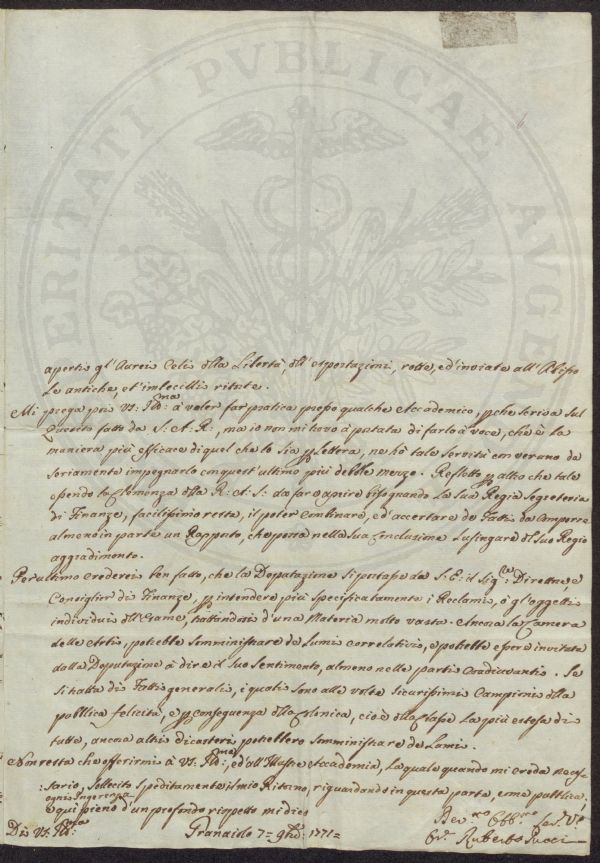 PVBLICAE
aperti gl'Aurei Celi della Libertà dell'esportazioni, rotte, ed'inviate all'Abisso
le antiche, et'imbecilli ritorte.
Mi prega poi VS: Ill:ma à voler far pratica presso qualche Accademico, pche scriva sul
Quesito fatto da S: A: R:, ma io non mi trovo à portata di farlo à voce, che è la
maniera più efficace di quel che lo sia p Lettera, ne hò tale servitù con veruno da
seriamente impegnarlo con quest'ultimo più debole mezzo. Rifletto p altro che tale
essendo la Clemenza della R: A: S: da fare aprire bisognando la sua Regia Segreteria
di Finanze, facilissimo resta, il poter combinare, ed'accertare de Fatti da comporre
almeno in parte un Rapporto, che possa nella sua conclusione lusingare del suo Regio
aggradimento.
Per ultimo crederei ben fatto, che la Deputazione si portasse da S: E: il Sig:re Direttore, e
Consiglier di Finanze, p intendere più specificatamente i Reclami, ò gl'oggetti
individui dell'Esame, trattandosi d'una Materia molto vasta. Ancora la Camera
delle Arti, potrebbe somministrare de Lumi correlativi, e potrebbe essere invitata
dalla Deputazione à dire il suo sentimento, almeno nelle parti coadiuvanti. Se
si tratta di Fatti generali, i quali sono alle volte sicurissimi Campioni della
pubblica felicità, e p conseguenza della Colonica, cioè della classe la più estesa di
tutte, ancora altri dicasteri potrebbero somministrare de Lumi.
Non resta che offerirmi à VS: Ill:ma, ed'all'Illustre Accademia, la quale quando mi creda neces:
:sario, sollecito speditamente il mio Ritorno, riguardando in questa parte, come pubblica,
ogni Ingerenza
e qui pieno d'un profondo rispetto mi dico
Di VS: Ill:ma Granaiolo 7= 9bre 1771=
Dev:mo Obb:mo
Cav: Ruberto Pucci